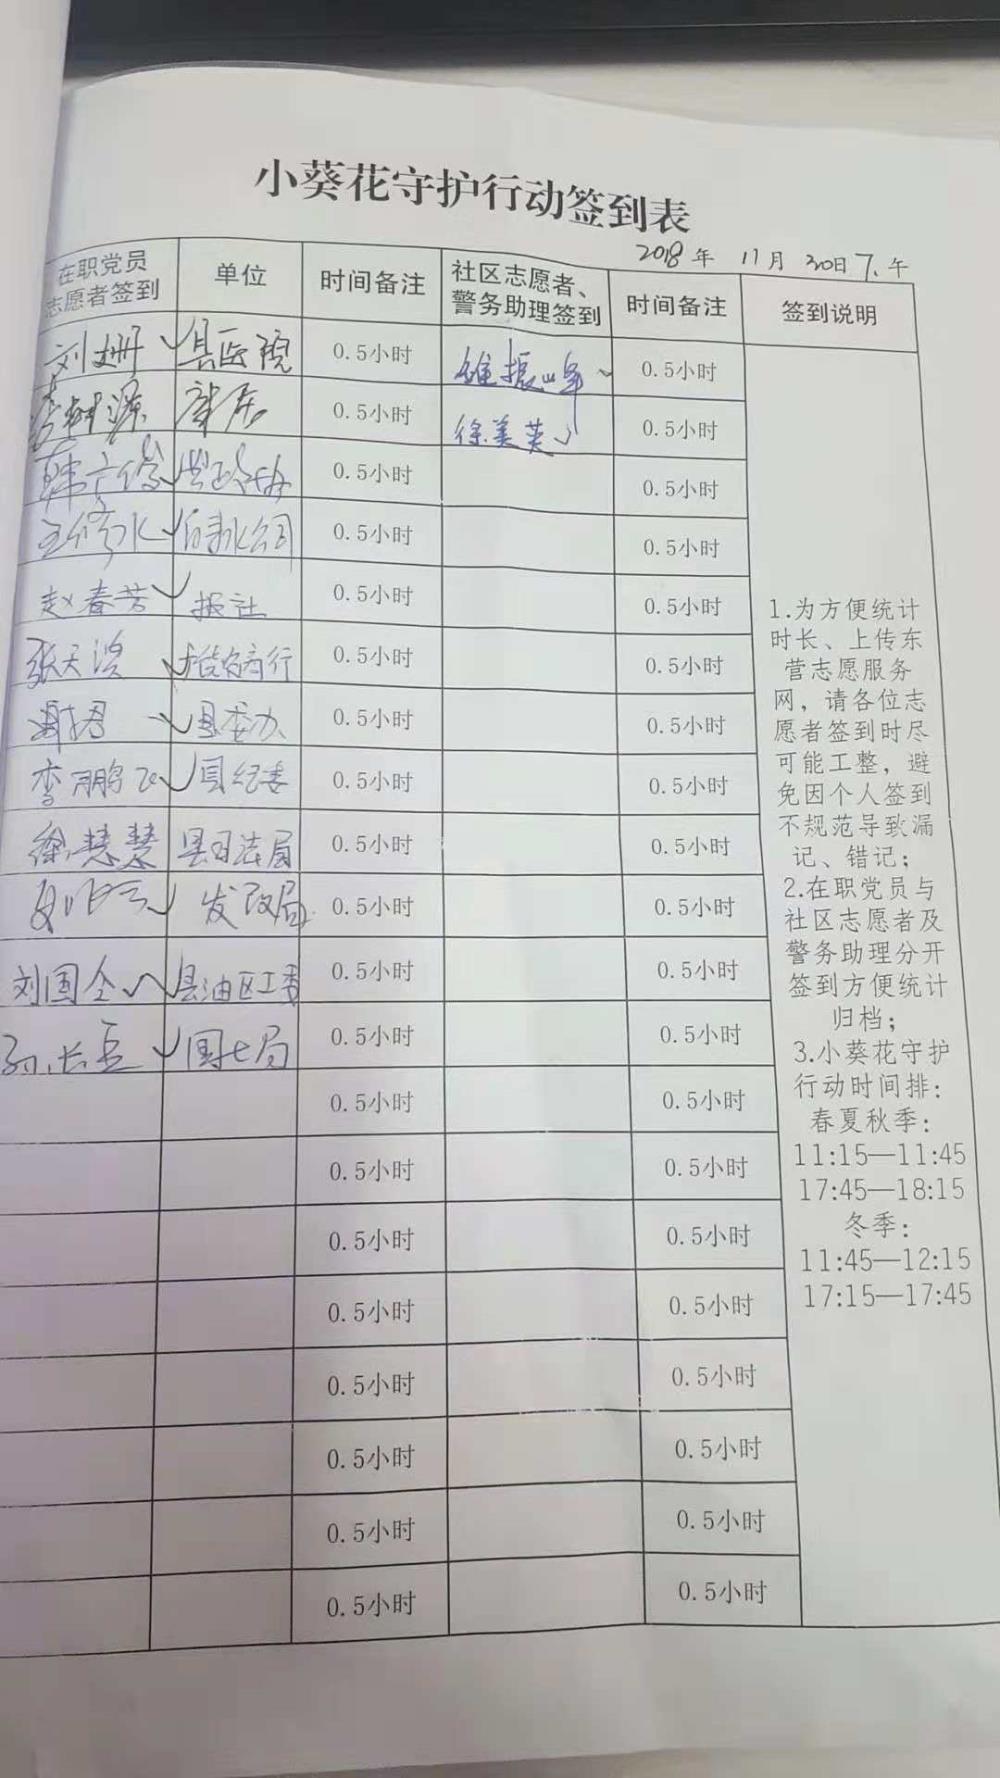 小葵花守护行动签到表
2018年 11月 30日下午
在职党员
志愿者签到
单位
时间备注
社区志愿者、
警务助理签到
时间备注
签到说明
刘姗 县医院 0.5小时 振峰 0.5小时
源 0.5小时 徐美英 0.5小时
韩 县政协 0.5小时 0.5小时
王修水 自来水公司 0.5小时 0.5小时
赵春芳 报社 0.5小时 0.5小时
张天 农商行 0.5小时 0.5小时
县委办 0.5小时 0.5小时
李鹏飞 县纪委 0.5小时 0.5小时
徐慧慧 县司法局 0.5小时 0.5小时
发改局 0.5小时 0.5小时
刘国全 县油区工委 0.5小时 0.5小时
孙长 国土局 0.5小时 0.5小时
0.5小时 0.5小时
0.5小时 0.5小时
0.5小时 0.5小时
0.5小时 0.5小时
0.5小时 0.5小时
0.5小时 0.5小时
0.5小时 0.5小时
0.5小时 0.5小时
1.为方便统计
时长、上传东
营志愿服务
网，请各位志
愿者签到时尽
可能工整，避
免因个人签到
不规范导致漏
记、错记；
2.在职党员与
社区志愿者及
警务助理分开
签到方便统计
归档；
3.小葵花守护
行动时间排：
春夏秋季：
11:15—11:45
17:45—18:15
冬季：
11:45—12:15
17:15—17:45